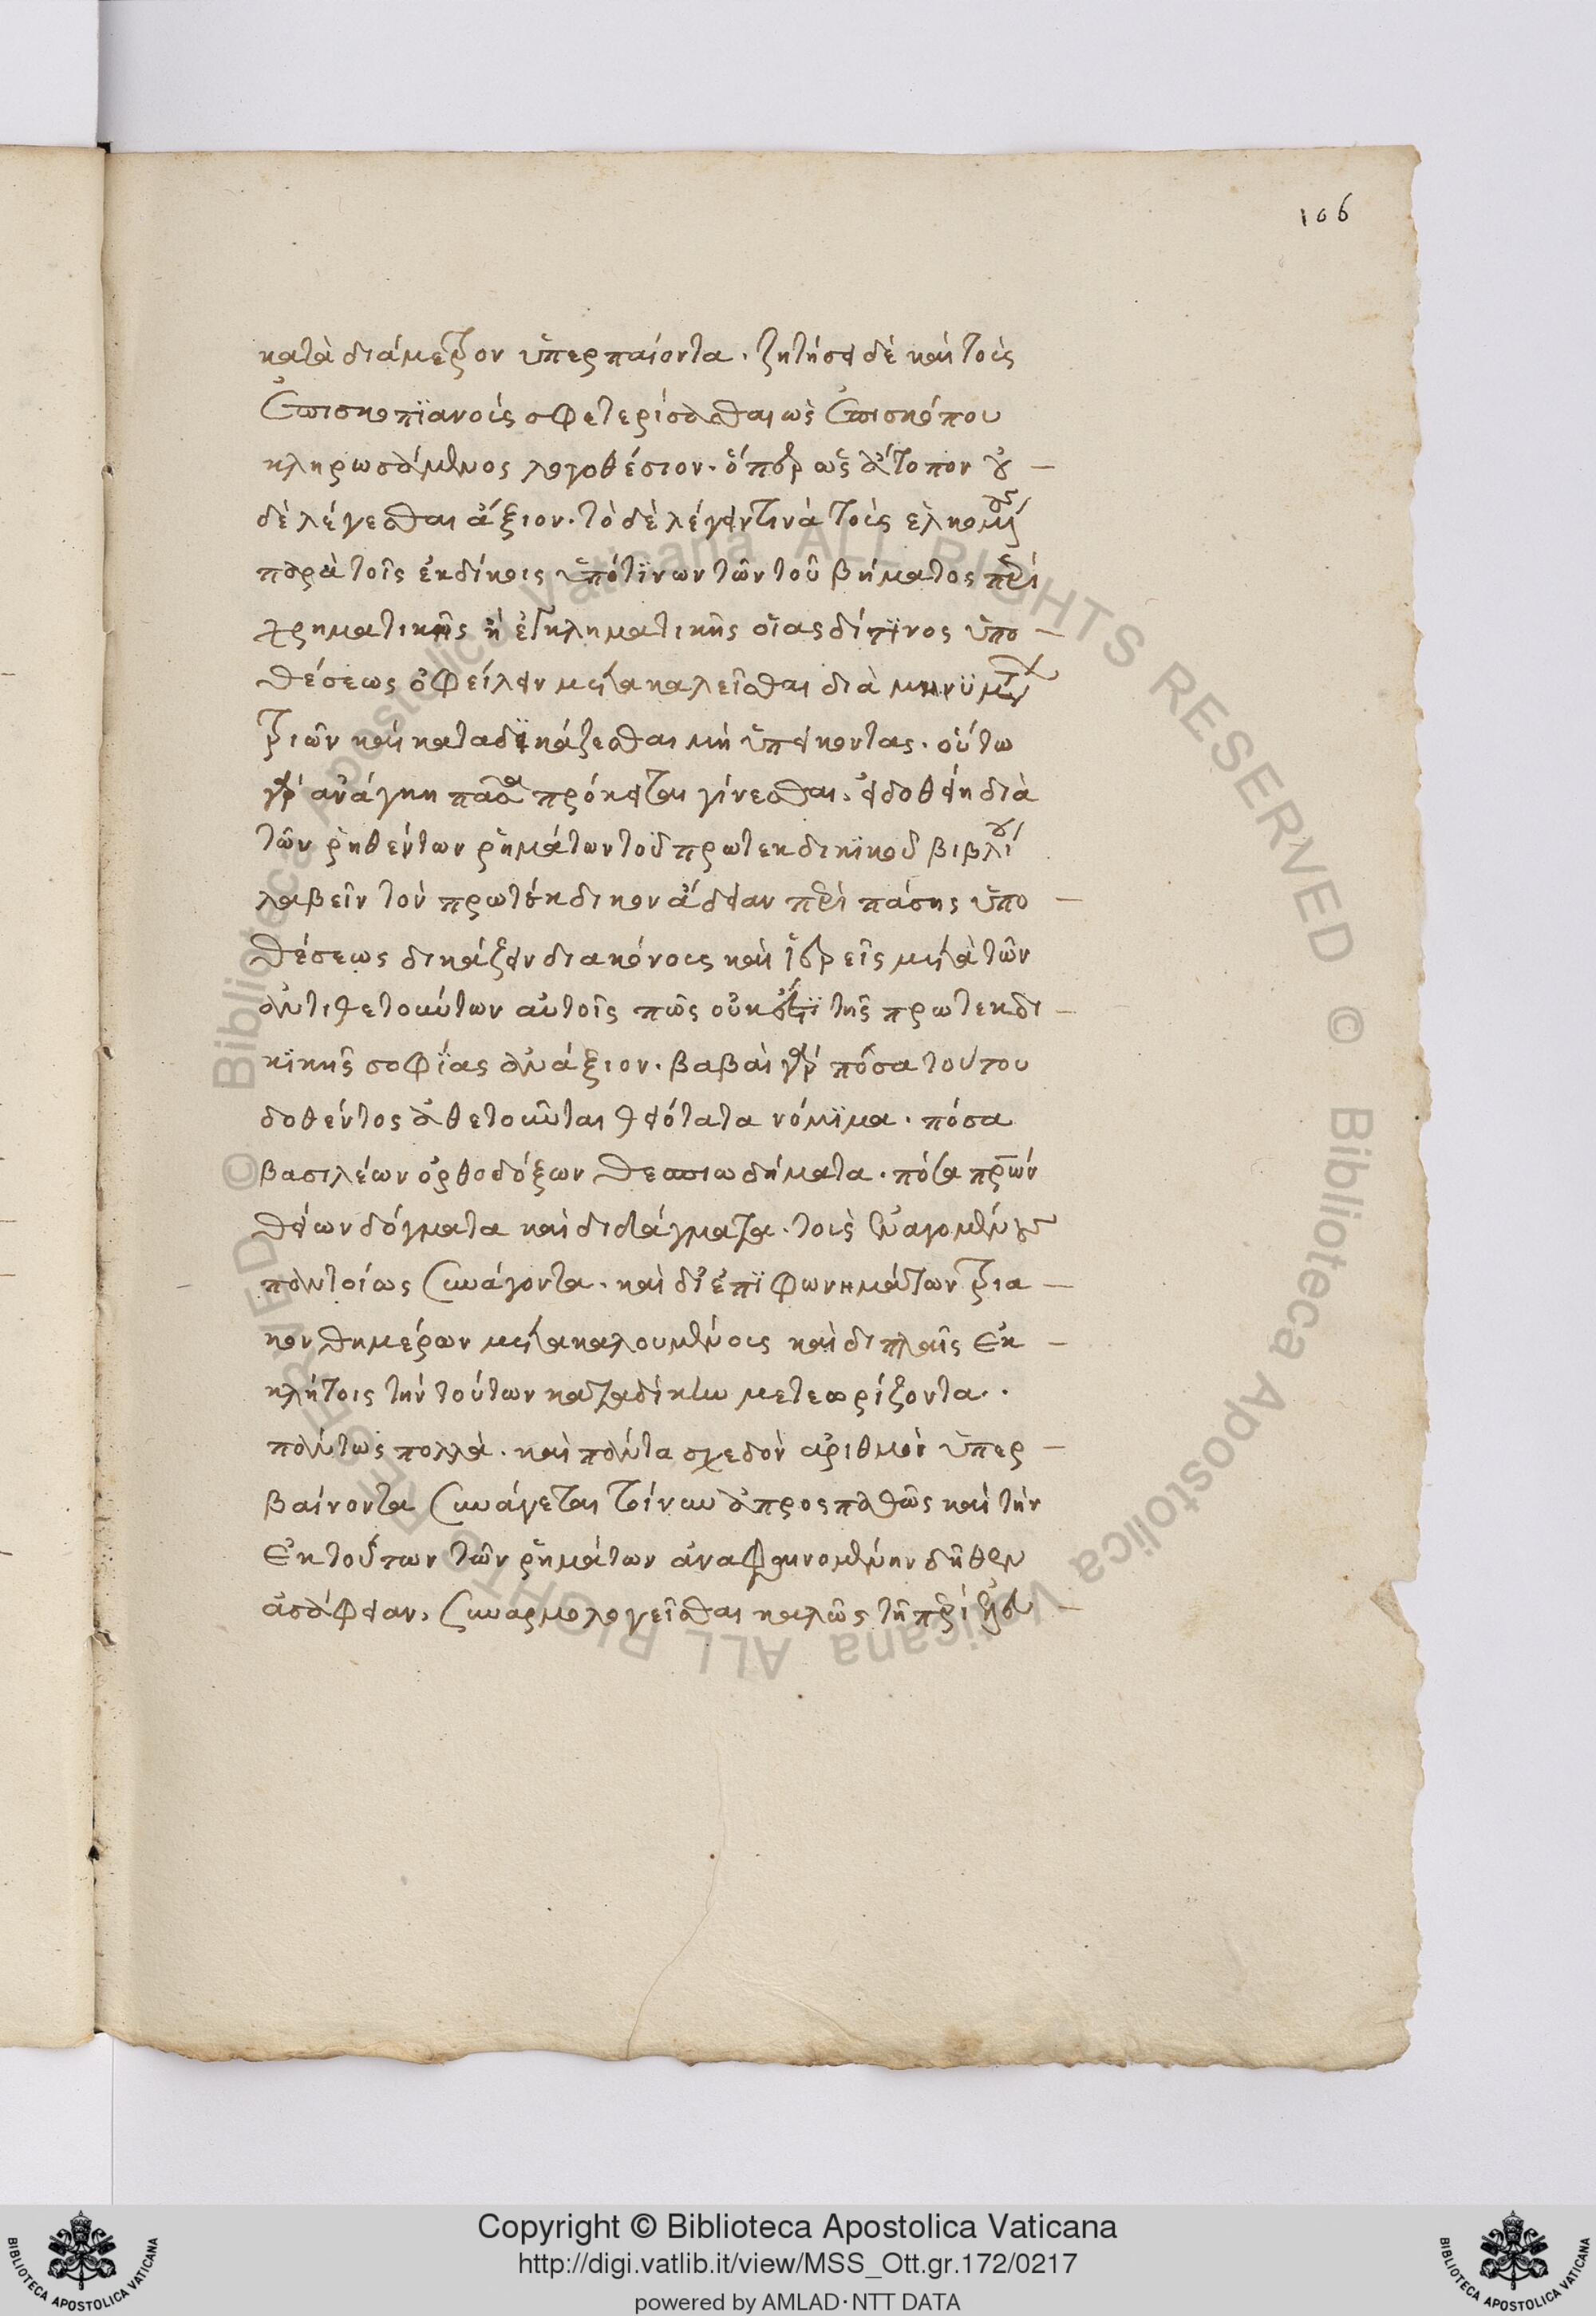 106
κατὰ διάμετρον ὑπερπαίοντα. ζητήσει δὲ καὶ τοὺς
ἐπισκοπϊανοὺς σφετερίσασθαι ὡς ἐπισκόπου
κληρωσάμενος λογοθέσιον. ὅπερ ὡς ἄτοπον οὐ
δὲ λέγεσθαι ἄξιον. τὸ δὲ λέγειν τινὰ τοὺς
παρὰ τοῖς ἐκδίκοις ὑπό τϊνων τῶν τοῦ βήματος περὶ
χρηματικῆς ἢ ἐγκληματικῆς οἵας δή τϊνος ὑπο
θέσεως ὀφείλειν μετακαλεῖσθαι διὰ μηνϋμάτων
τριῶν καὶ καταδϊκάζεσθαι μὴ ὑπείκοντας. οὕτω
γὰρ ἀνάγκη πᾶσα πρόκειται γίνεσθαι. εἰ δοθείη διὰ
τῶν ῥηθέντων ῥημάτων τοῦ πρωτεκδικϊκοῦ βιβλίου
λαβεῖν τὸν πρωτέκδικον ἄδειαν περὶ πάσης ὑπο
θέσεως δικάζειν διακόνους καὶ ἱερεῖς μετὰ τῶν
αὐτοῖς πῶς οὐκ ἔστϊ τῆς πρωτεκδι
κϊκῆς σοφΐας ἀνάξιον. βαβαὶ γὰρ πόσα τούτου
δοθέντος ἀθετοῦνται θειότατα νόμϊμα. πόσα
βασιλέων ὀρθοδόξων θεσπιωδήματα. πόσα πρων
θείων δόγματα καὶ διατάγματα. τοὺς ἐναγομένους
παντοίως συνάγοντα. καὶ δι' ἐπϊφωνημάτων τρια
κονθημέρων μετακαλουμένους καὶ διπλαῖς ἐκ
κλήτοις τὴν τούτων καταδίκην μετεωρίζοντα.
πάντως πολλά. καὶ πάντα σχεδὸν ἀριθμὸν ὑπερ
βαίνοντα συνάγεται τοίνυν ἀπροσπαθῶς καὶ τὴν
ἐκ τούτων τῶν ῥημάτων ἀναφαινομένην δῆθεν
ἀσάφειαν. συναρμολογεῖσθαι καλῶς τῇ περὶ
Copyright © Biblioteca Apostolica Vaticana
http://digi.vatlib.it/view/MSS_Ott.gr.172/0217
powered by AMLAD·NTT DATA
BIBLIOTECA APOSTOLICA VATICANA
BIBLIOTECA APOSTOLICA VATICANA
© Biblioteca Apostolica Vaticana ALL RIGHTS RESERVED © Biblioteca Apostolica Vaticana ALL RIGHTS RESERVED